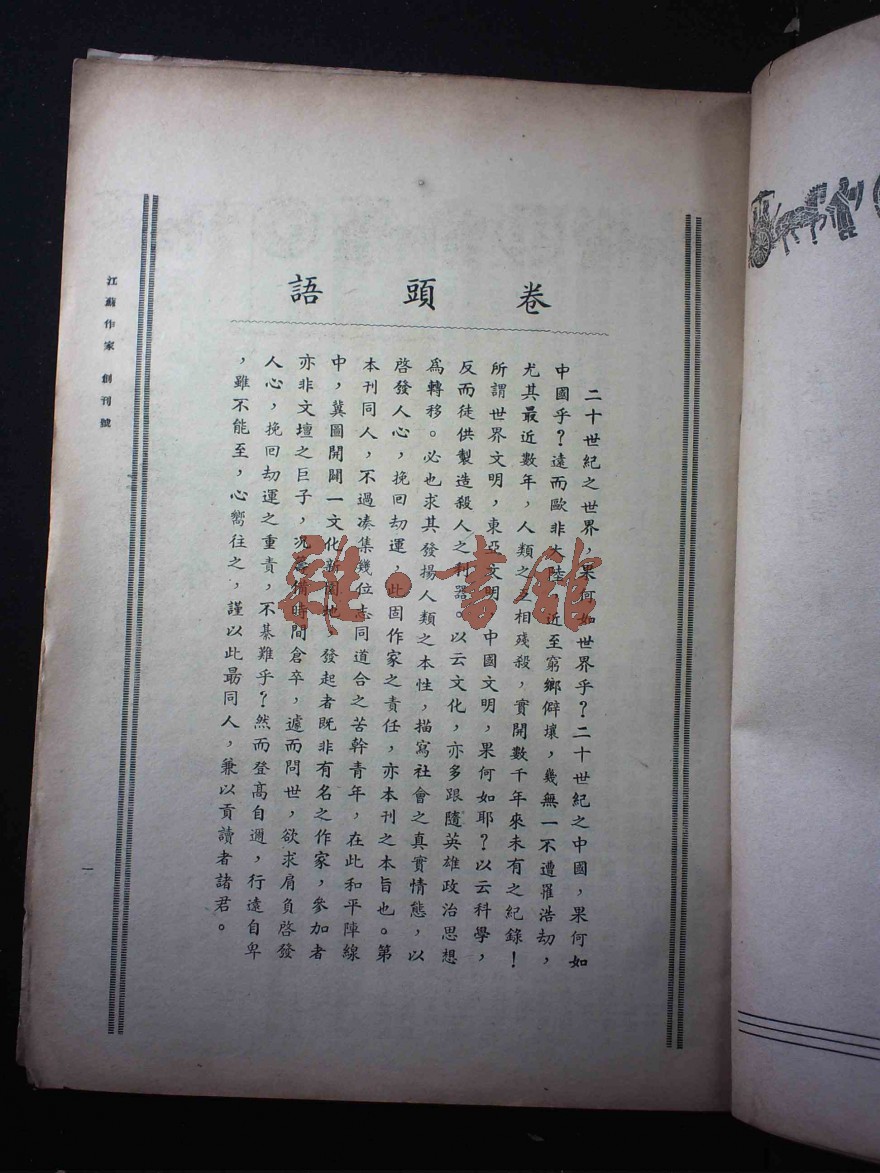 卷頭語
二十世紀之世界，果何如世界乎？二十世紀之中國，果何如
中國乎？遠而歐非大陸，近至窮鄉僻壤，幾無一不遭罹浩劫，
尤其最近數年，人類之互相殘殺，實開數千年來未有之紀錄！
所謂世界文明，東亞文明，中國文明，果何如耶？以云科學，
反而徒供製造殺人之利器。以云文化，亦多跟隨英雄政治思想
爲轉移。必也求其發揚人類之本性，描寫社會之真實情態，以
啓發人心，挽回劫運，此固作家之責任，亦本刊之本旨也。第
本刊同人，不過凑集幾位志同道合之苦幹青年，在此和平陣線
中，冀圖開闢一文化新園地，發起者既非有名之作家，參加者
亦非文壇之巨子，况籌備時間倉卒，遽而問世，欲求肩負啓發
人心，挽回劫運之重責，不綦難乎？然而登高自邇，行遠自卑
，雖不能至，心嚮往之，謹以此勗同人，兼以貢讀者諸君。
江蘇作家 創刊號
一
雜·書館